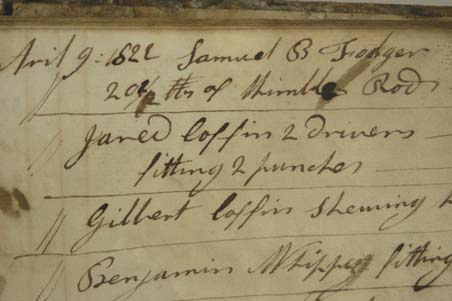 Aril 9: 1822 Samuel B Fodger
20½ lbs of thimble Rods
〃 Jared Coffin 2 drivers
fitting 2 punches
〃 Gilbert Coffin shewing
〃 Benjamin Whippey fitting